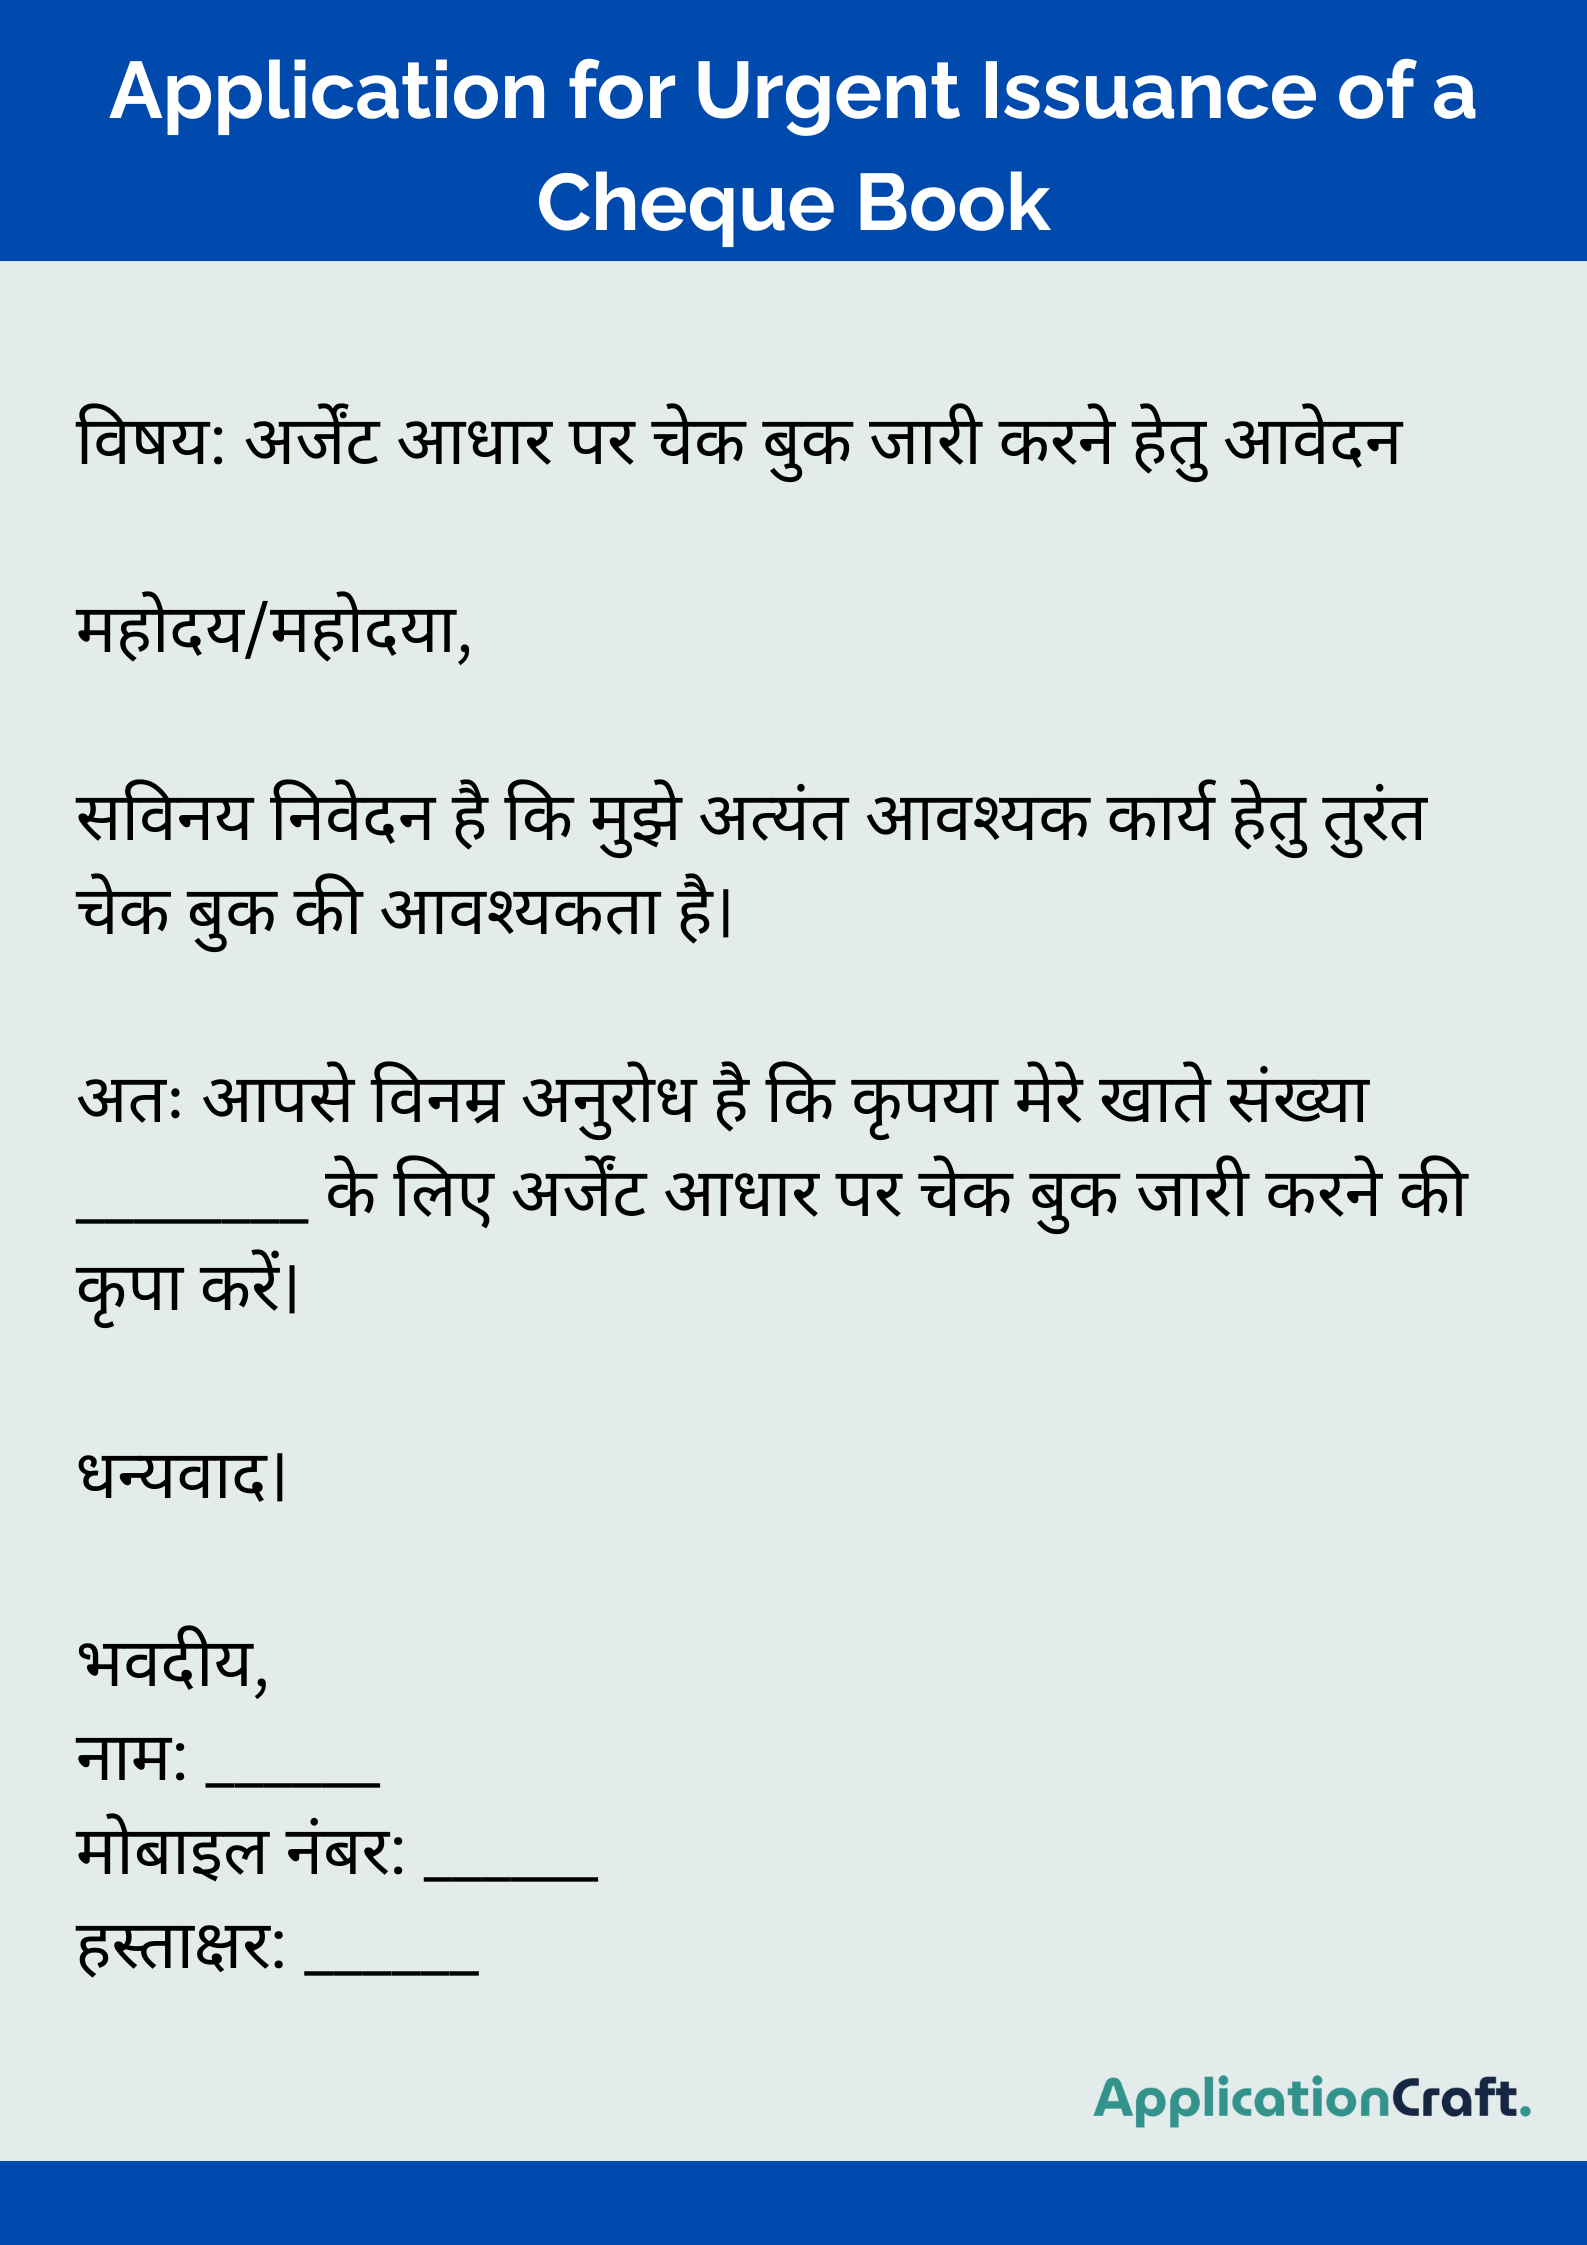 Application for Urgent Issuance of a
Cheque Book
विषय: अर्जेंट आधार पर चेक बुक जारी करने हेतु आवेदन
महोदय/महोदया,
सविनय निवेदन है कि मुझे अत्यंत आवश्यक कार्य हेतु तुरंत
चेक बुक की आवश्यकता है।
अतः आपसे विनम्र अनुरोध है कि कृपया मेरे खाते संख्या
________ के लिए अर्जेंट आधार पर चेक बुक जारी करने की
कृपा करें।
धन्यवाद।
भवदीय,
नाम: ______
मोबाइल नंबर: ______
हस्ताक्षर: ______
ApplicationCraft.